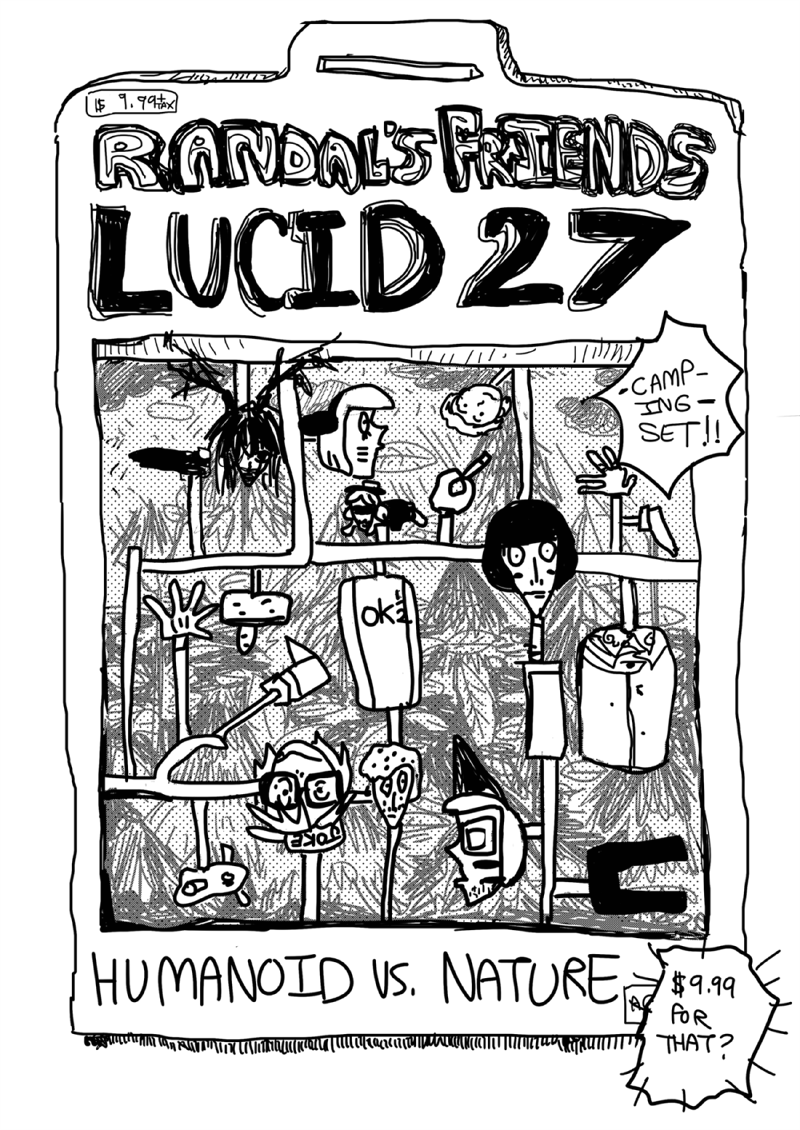 $ 9.99 + TAX
RANDAL'S FRIENDS
LUCID 27
- CAMP -
ING -
SET!!
JOKE
HUMANOID VS. NATURE
$9.99
FOR
THAT?